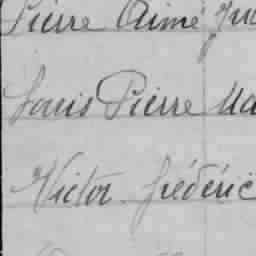 Pierre Aimé
Louis Pierre
Victor Frédéric